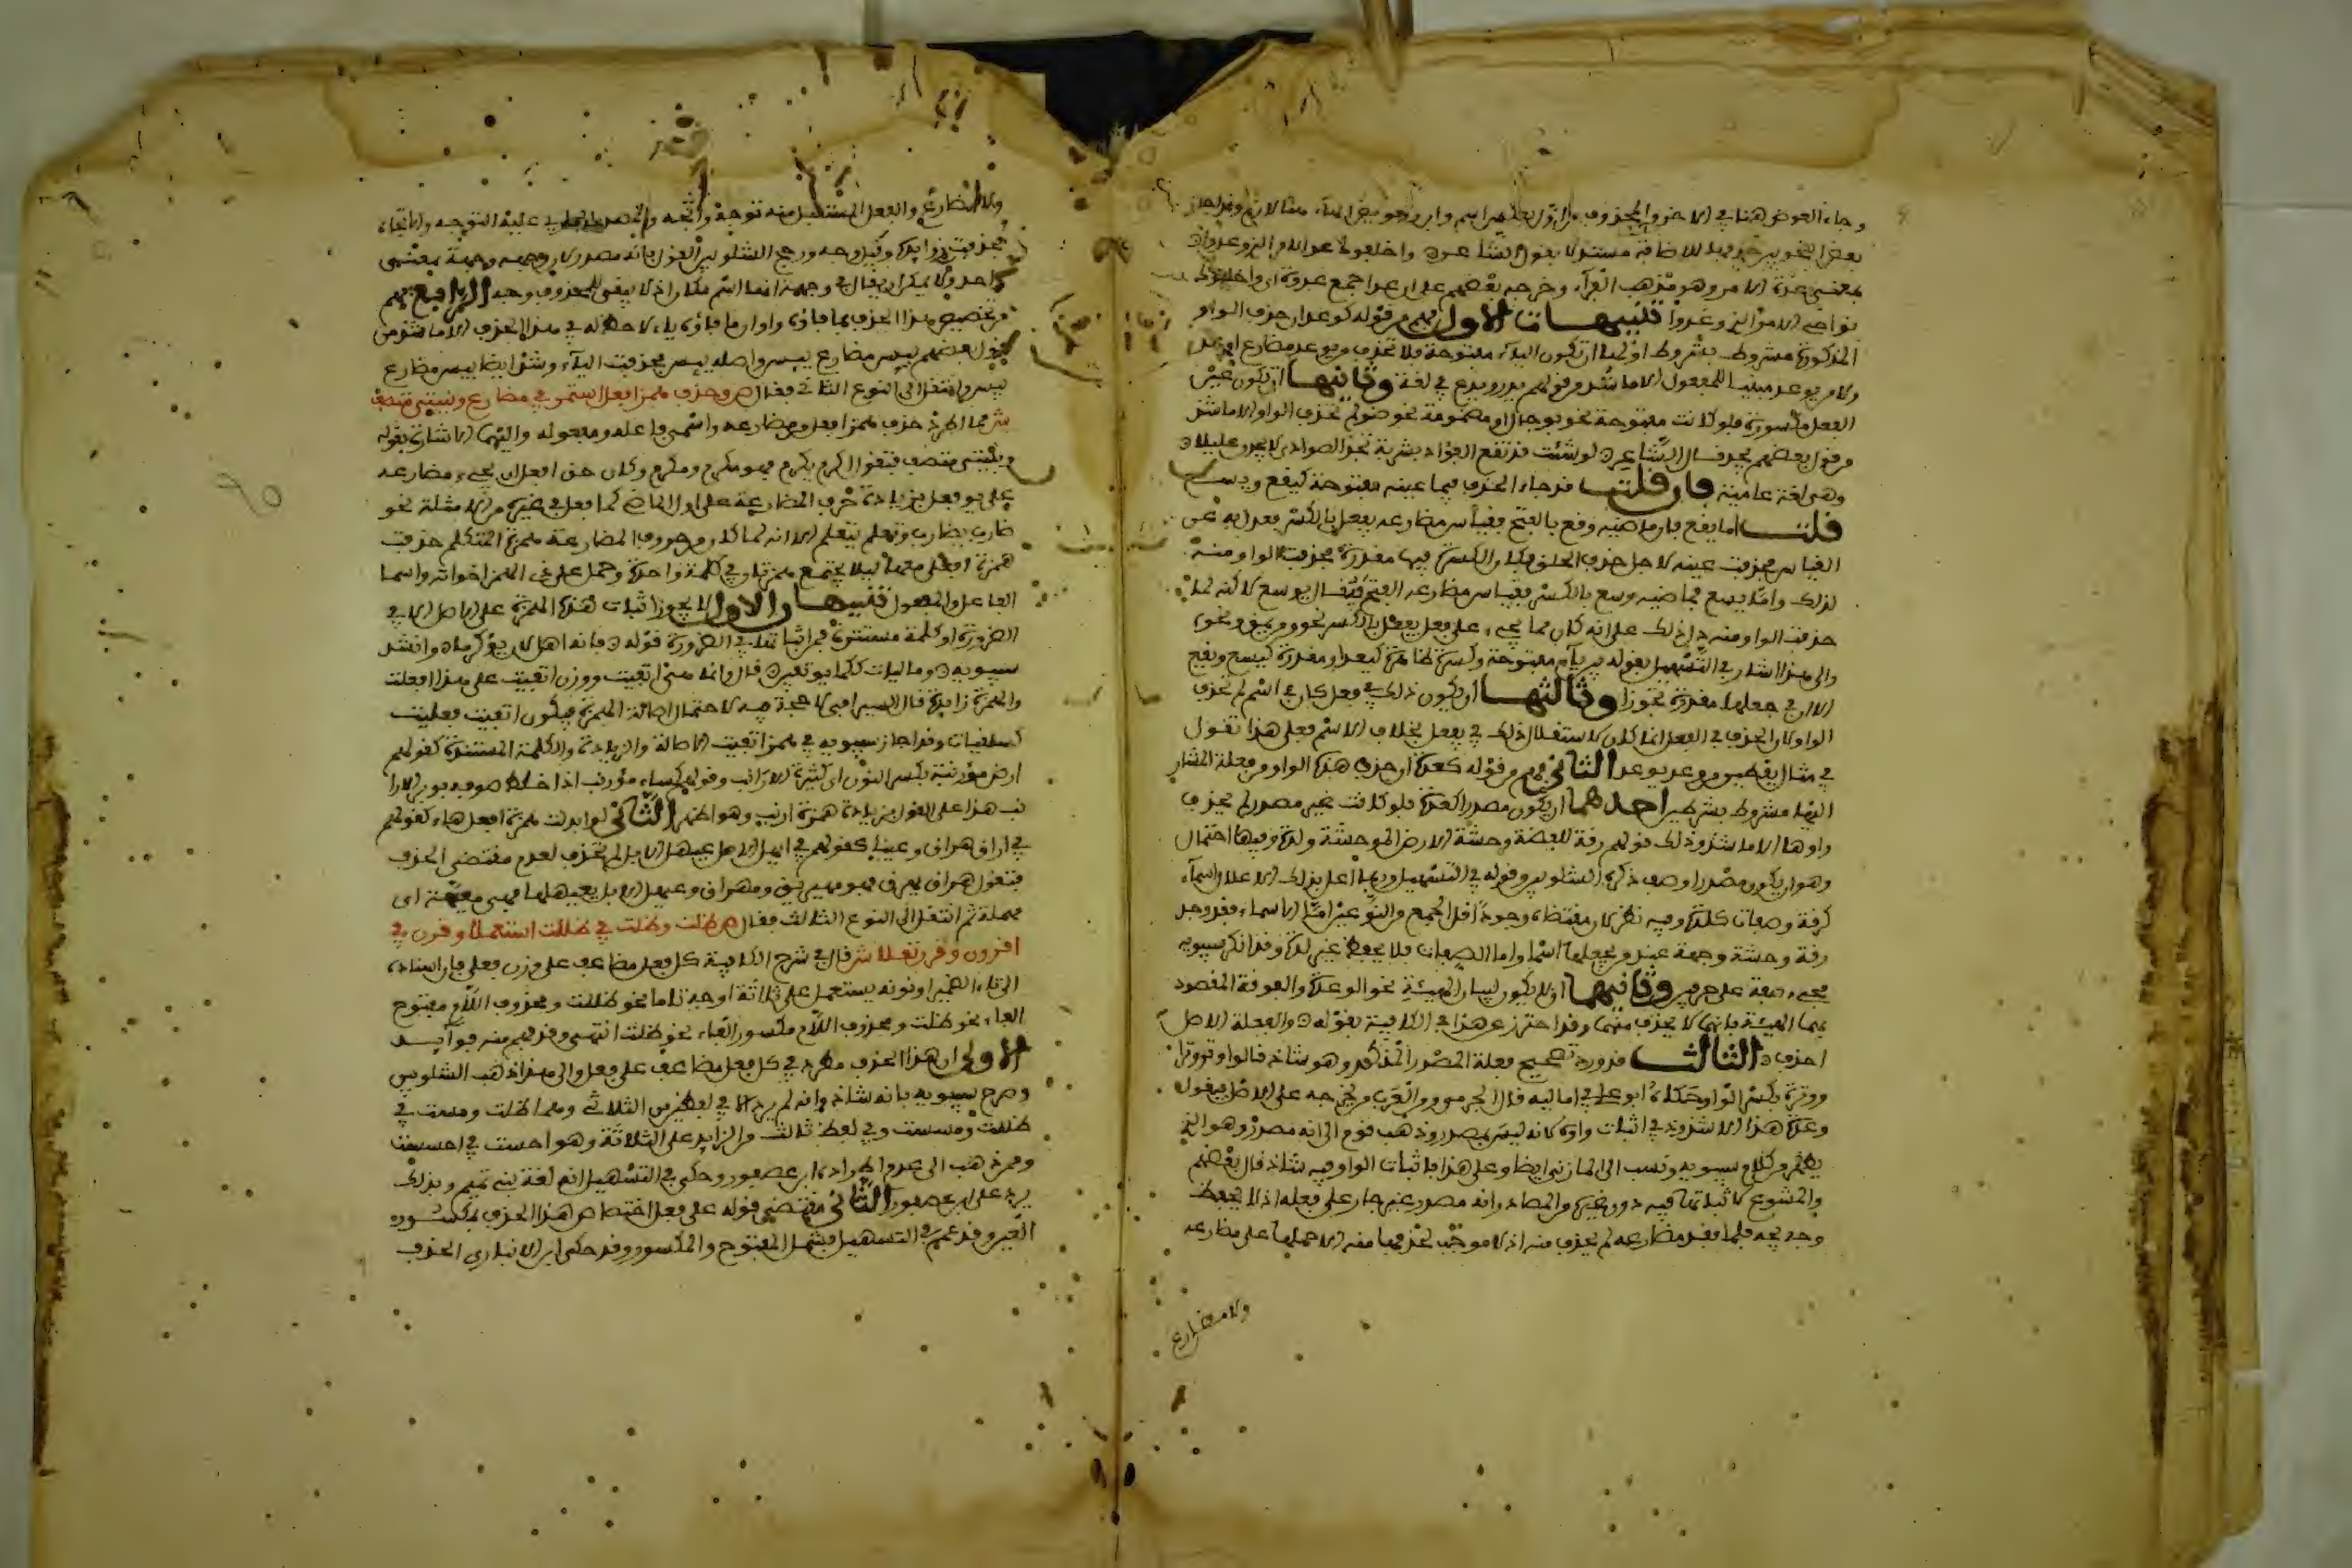 بعض النحويين حذفها للاضافة مستدلا بقول الشاعر واخلفوك عد الامر الذي وعدوا
بمعنى عدة الامر وهو مذهب الفراء وخرجه بعضهم على ان عدا جمع عدوة اي واخلفوك
نواحي الامر الذي وعدوا تنبيهات الاول فهم من قوله كوعد ان حذف الواو
المذكورة مشروط بشروط اولها ان تكون الياء مفتوحة فلا تحذف من يوعد مضارع اوعد
ولا من يوعد مبنيا للمفعول الا ما شذ من قولهم يدر ويدع في لغة وثانيها ان تكون عين
الفعل مكسورة فلو كانت مفتوحة نحو يوجل او مضمومة نحو يوضو لم تحذف الواو الا ما شذ
من قول بعضهم يجد قال الشاعر لو شئت قد نقع الفؤاد بشربة تدع الصوادي لا يجدن غليلا
وهي لغة عامرية فان قلت قد جاء الحذف فيما عينه مفتوحة كيقع ويسع
قلت اما يقع فان ماضيه وقع بالفتح فقياس مضارعه يفعل بالكسر فعدل به عن
القياس ففتحت عينه لاجل حرف الحلق فكان الكسرة فيها مقدرة فحذفت الواو منه
لذلك واما يسع فماضيه وسع بالكسر فقياس مضارعه الفتح فيقال يوسع لاكنه لما
حذفت الواو منه دل ذلك على انه كان مما يجيء على فعل يفعل بالكسر نحو ومق يمق ونحوه
والى هذا اشار في التسهيل بقوله بين ياء مفتوحة وكسرة ظاهرة كيعد او مقدرة كيسع ويقع
الا ان في جعلها مقدرة تجوزا وثالثها ان يكون ذلك في فعل فلو كان في اسم لم تحذف
الواو لان الحذف في الفعل انما كان لاستثقال ذلك في يفعل بخلاف الاسم فعلى هذا تقول
في مثال يقطين من وعد يوعيد الثاني فهم من قوله كعدة ان حذف هذه الواو من فعلة المشار
اليها مشروط بشرطين احدهما ان يكون مصدرا كعدة فلو كانت غير مصدر لم تحذف
واوها الا ما شذ وذلك قولهم رقة للفضة وحشة للارض الموحشة ولدة وفيها احتمال
وهو ان يكون مصدرا وصف به ذكره الشلوبين وقوله في التسهيل وربما اعل بذلك الاعلال اسماء
كرقة وصفات كلدة وفيه نظر لان مقتضاه وجود اقل الجمع من النوعين اما الاسماء فقد وجد
رقة وحشة وجهة عند من يجعلها اسما واما الصفات فلا يحفظ غير لدة وقد انكر سيبويه
مجيء صفة على حرفين وثانيهما ان لا يكون لبيان الهيئة نحو الوعدة والوقفة المقصود
بهما الهيئة فانهما لا يحذف منهما وقد احترز عن هذا في الكافية بقوله والفعلة الاصل
احذف الثالث قد ورد تصحيح فعلة المصدر المذكور وهو شاذ قالوا وتره وترا
ووترة بكسر الواو حكاه ابو علي في اماليه قال الجرمي ومن العرب من يخرجه على الاصل فيقول
وعدة هذا لا شذوذ في اثبات واوه لانه ليس بمصدر وذهب قوم الى انه مصدر وهو الذي
يظهر من كلام سيبويه ونسب الى المازني ايضا وعلى هذا فاثبات الواو فيه شاذ قال بعضهم
والمسوغ لاثباتها فيه دون غيره من المصادر انه مصدر غير جار على فعله اذ لا يحفظ
وجه يجه فلما فقد مضارعه لم تحذف منه اذ لا موجب لحذفها منه الا حملها على مضارعه
ولا مضارع
ولا مضارع والفعل المستعمل منه توجه واتجه والمصدر الجاري عليه التوجه والاتجاه
فحذفت زوايده وقيل وجهة ورجح الشلوبين القول بانه مصدر لان وجهة وجهة بمعنى
واحد ولا يمكن ان يقال في جهة انها اسم مكان اذ لا يبقى للحذف وجه الرابع فهم
من تخصيص هذا الحذف بما فاؤه واو ان ما فاؤه ياء لا حظ له في هذا الحذف الا ما شذ من
قول بعضهم يسر مضارع يسر واصله ييسر فحذفت الياء وشذ ايضا يبس مضارع
يبس وانتقل الى النوع الثاني فقال ص وحذف همز افعل استمر في مضارع وبنيتي متصف
ش مما اطرد حذف همز افعل من مضارعه واسمي فاعله ومفعوله واليهما الاشارة بقوله
وبنيتي متصف فتقول اكرم يكرم فهو مكرم ومكرم وكان حق افعل ان يجيء مضارعه
على يؤفعل بزيادة حرف المضارعة على اول الماضي كما فعل في غيره من الامثلة نحو
ضارب يضارب وتعلم يتعلم الا انه لما كان من حروف المضارعة همزة المتكلم حذفت
همزة افعل معها ليلا يجتمع همزتان في كلمة واحدة وحمل على ذي الهمز اخواته واسما
الفاعل والمفعول تنبيهان الاول لا يجوز اثبات هذه الهمزة على الاصل الا في
الضرورة او كلمة مستندرة فمن اثباتها في الضرورة قوله فانه اهل لان يؤكرما وانشد
سيبويه وصاليات ككما يؤثفين قال وانما هي من اثفيت ووزن اثفيت على هذا افعلت
والهمزة زائدة قال السيرافي لا حجة فيه لاحتمال اصالة الهمزة فيكون اثفيت فعليت
كسلقيت وقد اجاز سيبويه في همز اثفيت الاصالة والزيادة والكلمة المستندرة كقولهم
ارض مؤرنبة بكسر النون اي كثيرة الارانب وقولهم كساء مؤرنب اذا خلط صوفه بوبر الارا
نب هذا على القول بزيادة همزة ارنب وهو اظهر الثاني لو ابدلت همزة افعل هاء كقولهم
في اراق هراق وعينا كقولهم في انهل الابل عنهل الابل لم تحذف لعدم مقتضى الحذف
فتقول هراق يهريق فهو مهريق ومهراق وعنهل الابل يعنهلها فهي معنهلة اي
مهملة ثم انتقل الى النوع الثالث فقال ص ظلت وظلت في ظللت استعملا وقرن في
اقررن وقرن نقلا ش قال في شرح الكافية كل فعل مضاعف على وزن فعل فان اسناده
الى تاء الضمير او نونه يستعمل على ثلاثة اوجه تاما نحو ظللت ومحذوف اللام مفتوح
الفاء نحو ظلت ومحذوف اللام مكسور الفاء نحو ظلت انتهى وقد فهم منه فوايد
الاولى ان هذا الحذف مطرد في كل فعل مضاعف على فعل والى هذا ذهب الشلوبين
وصرح سيبويه بانه شاذ وانه لم يرد الا في لفظين من الثلاثي وهما ظلت ومست في
ظللت ومسست وفي لفظ ثالث من الزايد على الثلاثة وهو احست في احسست
وممن ذهب الى عدم اطراده ابن عصفور وحكى في التسهيل انه لغة بني سليم وبذلك
يرد على ابن عصفور الثاني مقتضى قوله على فعل اختصاص هذا الحذف بمكسور
العين وقد عمم في التسهيل فشمل المفتوح والمكسور وقد حكى ابن الانباري الحذف